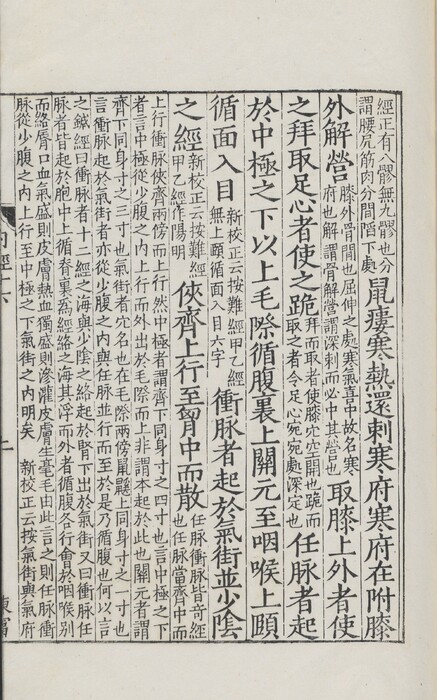 經正有八髎無九髎也分
謂腰尻筋肉分間陷下處
鼠瘻寒熱還刺寒府寒府在附膝
外解營
膝外骨間也屈伸之處寒氣喜中故名寒
府也解謂骨解營謂深刺而必中其營也
取膝上外者使
之拜取足心者使之跪
拜而取者使膝穴空開也跪而
取之者令足心宛宛處深定也
任脈者起
於中極之下以上毛際循腹裏上關元至咽喉上頤
循面入目
新校正云按難經甲乙經
無上頤循面入目六字
衝脈者起於氣街並少陰
之經
新校正云按難經
甲乙經作陽明
俠齊上行至胷中而散
任脈衝脈皆奇經
也任脈當齊中而
上行衝脈俠齊兩傍而上行然中極者謂齊下同身寸之四寸也言中極之下
者言中極從少腹之內上行而外出於毛際而上非謂本起於此也關元者謂
齊下同身寸之三寸也氣街者穴名也在毛際兩傍鼠鼷上同身寸之一寸也
言衝脈起於氣街者亦從少腹之內與任脈並行而至於是乃循腹也何以言
之鍼經曰衝脈者十二經之海與少陰之絡起於腎下出於氣街又曰衝脈任
脈者皆起於胞中上循脊裏爲經絡之海其浮而外者循腹各行會於咽喉別
而絡脣口血氣盛則皮膚熱血獨盛則滲灌皮膚生毫毛由此言之則任脈衝
脈從少腹之內上行至中極之下氣街之內明矣 新校正云按氣街與氣府